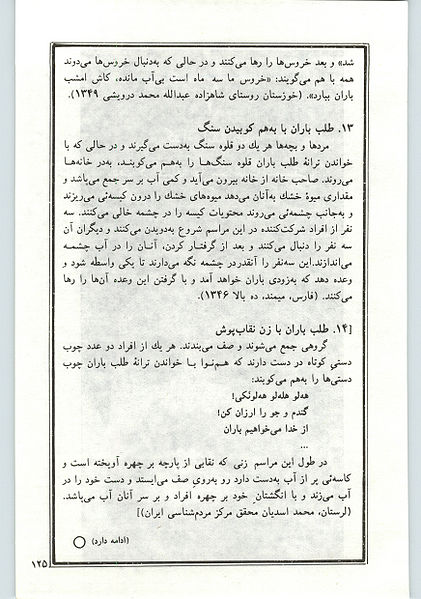 شد» و بعد خروس‌ها را رها می‌کنند و در حالی که به‌دنبال خروس‌ها می‌دوند
همه با هم می‌گویند: «خروس ما سه ماه است بی‌آب مانده، کاش امشب
باران ببارد». (خوزستان روستای شاهزاده عبدالله محمد درویشی ۱۳۴۹).
۱۳. طلب باران با به‌هم کوبیدن سنگ
مردها و بچه‌ها هر یك دو قلوه سنگ به‌دست می‌گیرند و در حالی که با
خواندن ترانهٔ طلب باران قلوه سنگ‌ها را به‌هم می‌کوبند، به‌در خانه‌ها
می‌روند. صاحب خانه از خانه بیرون می‌آید و کمی آب بر سر جمع می‌پاشد و
مقداری میوهٔ خشك به‌آنان می‌دهد میوه‌های خشك را درون کیسه‌ئی می‌ریزند
و به‌جانب چشمه‌ئی می‌روند محتویات کیسه را در چشمه خالی می‌کنند. سه
نفر از افراد شرکت‌کننده در این مراسم شروع به‌دویدن می‌کنند و دیگران آن
سه نفر را دنبال می‌کنند و بعد از گرفتار کردن، آنان را در آب چشمه
می‌اندازند.این سه‌نفر را آنقدردر چشمه نگه می‌دارند تا یکی واسطه شود و
وعده دهد که به‌زودی باران خواهد آمد و با گرفتن این وعده آن‌ها را رها
می‌کنند. (فارس، میمند، ده بالا ۱۳۴۶).
[۱۴. طلب باران با زن نقاب‌پوش
گروهی جمع می‌شوند و صف می‌بندند. هر یك از افراد دو عدد چوب
دستیِ کوتاه در دست دارند که هم‌نوا با خواندن ترانهٔ طلب باران چوب
دستی‌ها را به‌هم می‌کوبند:
هه‌لو هله‌لو هه‌لونکی!
گندم و جو را ارزان کن!
از خدا می‌خواهیم باران
...
در طول این مراسم زنی که نقابی از پارچه بر چهره آویخته است و
کاسه‌ئی پر از آب به‌دست دارد رو به‌رویِ صف می‌ایستد و دست خود را در
آب می‌زند و با انگشتان خود بر چهره افراد و بر سر آنان آب می‌پاشد.
(لرستان، محمد اسدیان محقق مرکز مردم‌شناسی ایران)]
(ادامه دارد)
۱۲۵